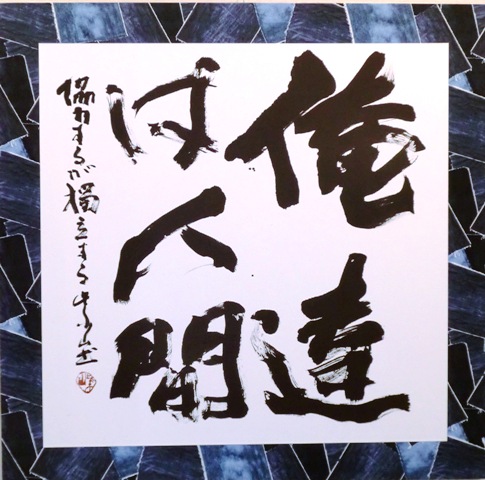 俺達
は人間
協力するが獨立する